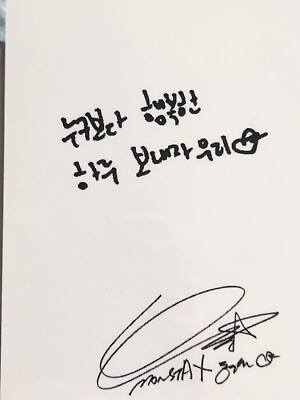 누구보다 행복한
하루 보내자 우리♡
MONSTA X